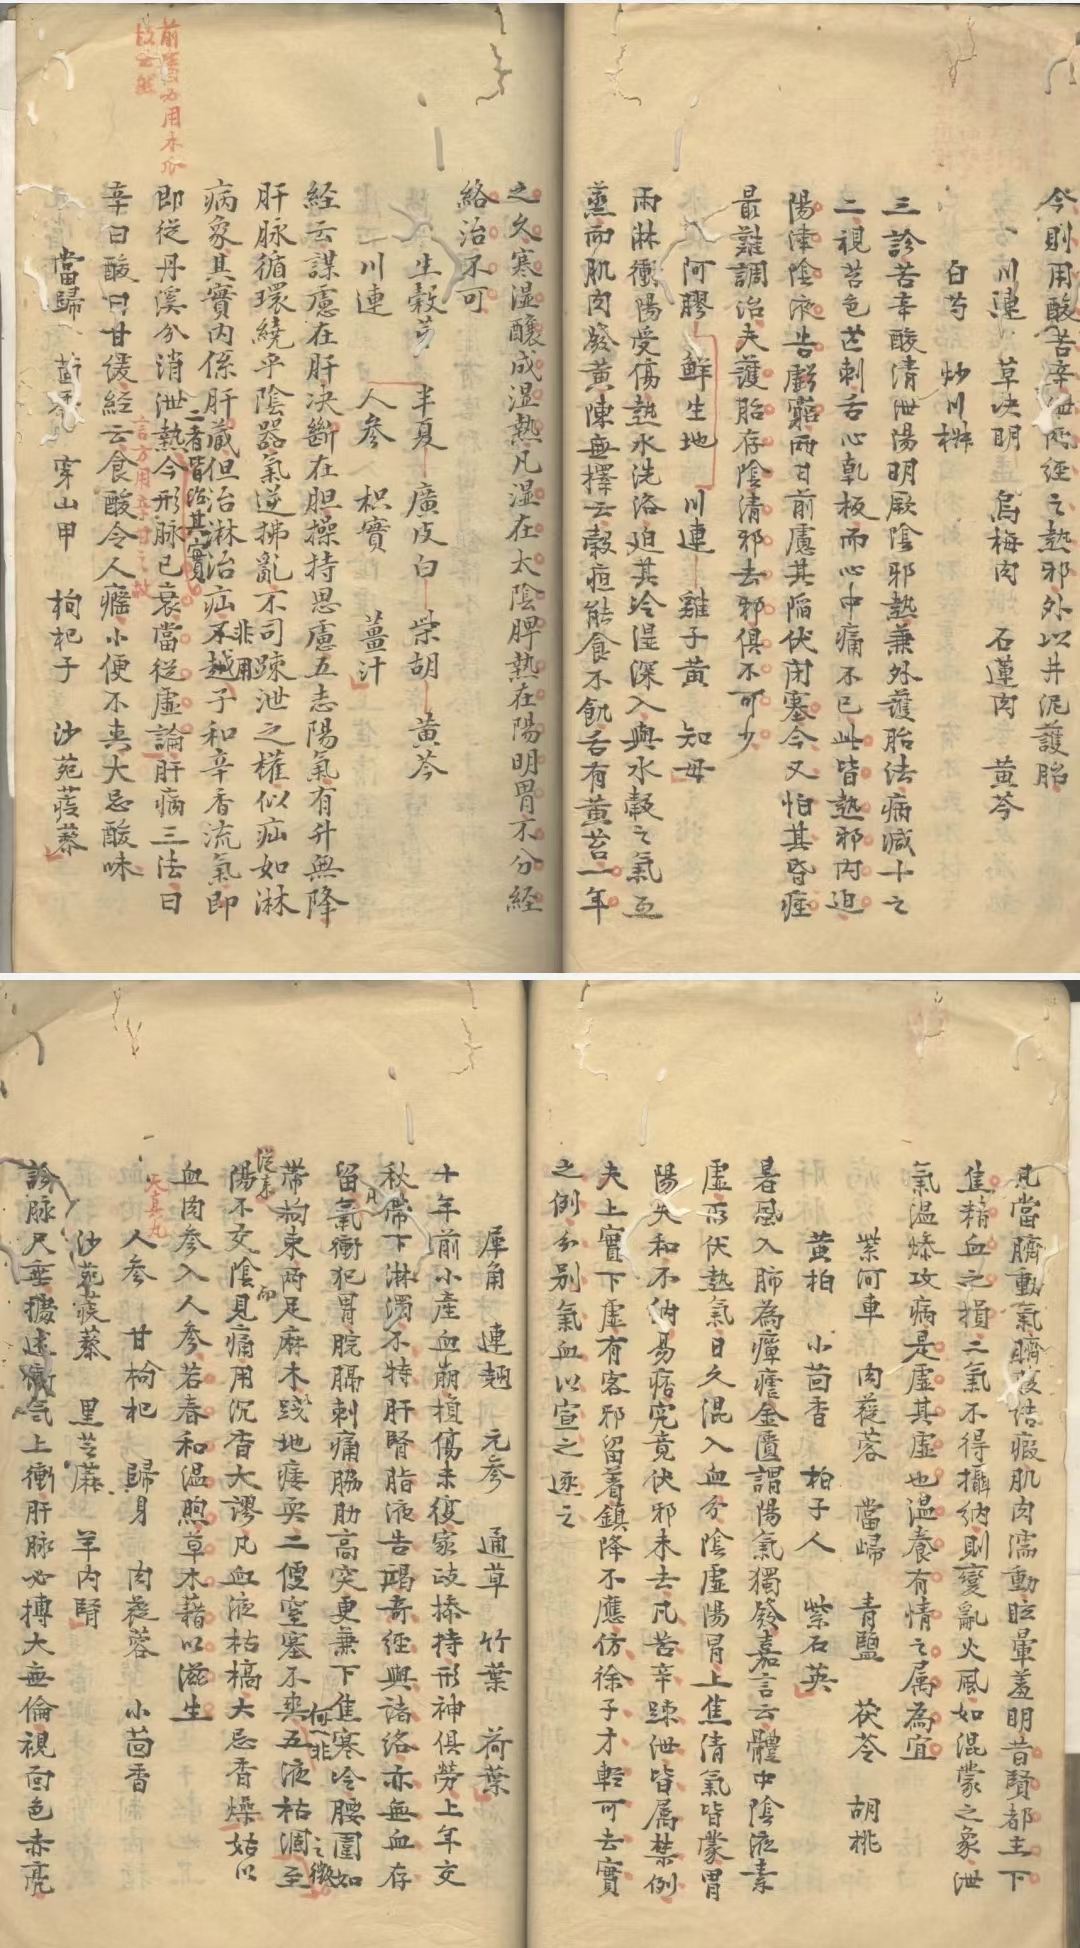 今則用酸苦辛泄兩經之熱邪外以井泥護胎
川連 草决明 烏梅肉 石蓮肉 黄芩
白芍 炒川椒
三診苦辛酸清泄陽明厥陰邪熱兼外護胎法病减十之
二視苔色芒刺舌心乾板而心中痛不已此皆熱邪内迫
陽津陰液告虧窮兩日前慮其陷伏閉塞今又怕其昏痙
最難調治夫護胎存陰清邪去邪俱不可少
阿膠 鮮生地 川連 雞子黄 知母
雨淋衝陽受傷熱水洗洛迫其冷湿深入與水穀之氣互
蒸而肌肉發黄陳無擇云穀疸能食不飢舌有黄苔一年
之久寒湿釀成湿熱凡湿在太陰脾熱在陽明胃不分経
絡治不可
生穀芽 半夏 廣皮白 柴胡 黄芩
川連 人參 枳實 薑汁
経云謀慮在肝决斷在胆操持思慮五志陽氣有升無降
肝脉循環繞乎陰器氣逆拂亂不司踈泄之權似疝如淋
病象其實内係肝藏但治淋治疝不越子和辛香流氣即
非用
二者皆治其實
即従丹溪分消泄熱今形脉已衰當従虚論肝病三法曰
辛曰酸曰甘缓経云食酸令人癃小便不爽大忌酸味
言方用辛甘之故
前書必用木瓜
故云然
當歸 穿山甲 枸杞子 沙苑蒺藜
凡當臍動氣臍腹結瘕肌肉濡動眩暈羞明昔賢都主下
焦精血之損二氣不得攝納則變亂火風如混蒙之象泄
氣温燥攻病是虚其虚也温養有情之属為宜
紫河車 肉蓯蓉 當歸 青鹽 茯苓 胡桃
黄柏 小茴香 柏子人 紫石英
暑風入肺為癉瘧金匱謂陽氣獨發嘉言云體中陰液素
虚所伏熱氣日久混入血分陰虚陽冒上焦清氣皆蒙胃
陽失和不納易痞究竟伏邪未去凡苦辛踈泄皆属禁例
夫上實下虚有客邪留着鎮降不應仿徐子才輕可去實
之例分别氣血以宣之逐之
犀角 連翹 元參 通草 竹葉 荷葉
十年前小產血崩損傷未復家政操持形神俱勞上年交
秋帶下淋濁不特肝腎脂液告竭奇經與諸絡亦無血存
留氣衝犯胃脘膈刺痛脇肋高突更兼下焦寒冷腰圍如
帶拘束兩足麻木踐地痿耎二便窒塞不爽五液枯涸至
何一非
之徵
陽不交陰見痛用沉香大謬凡血液枯槁大忌香燥姑以
従來
而
血肉參入人參若春和温煦草木藉以滋生
天真丸
人參 甘枸杞 歸身 肉蓯蓉 小茴香
沙苑蒺藜 黑芝蔴 羊内腎
診脉尺垂 氣上衝肝脉必搏大無倫視面色赤亮